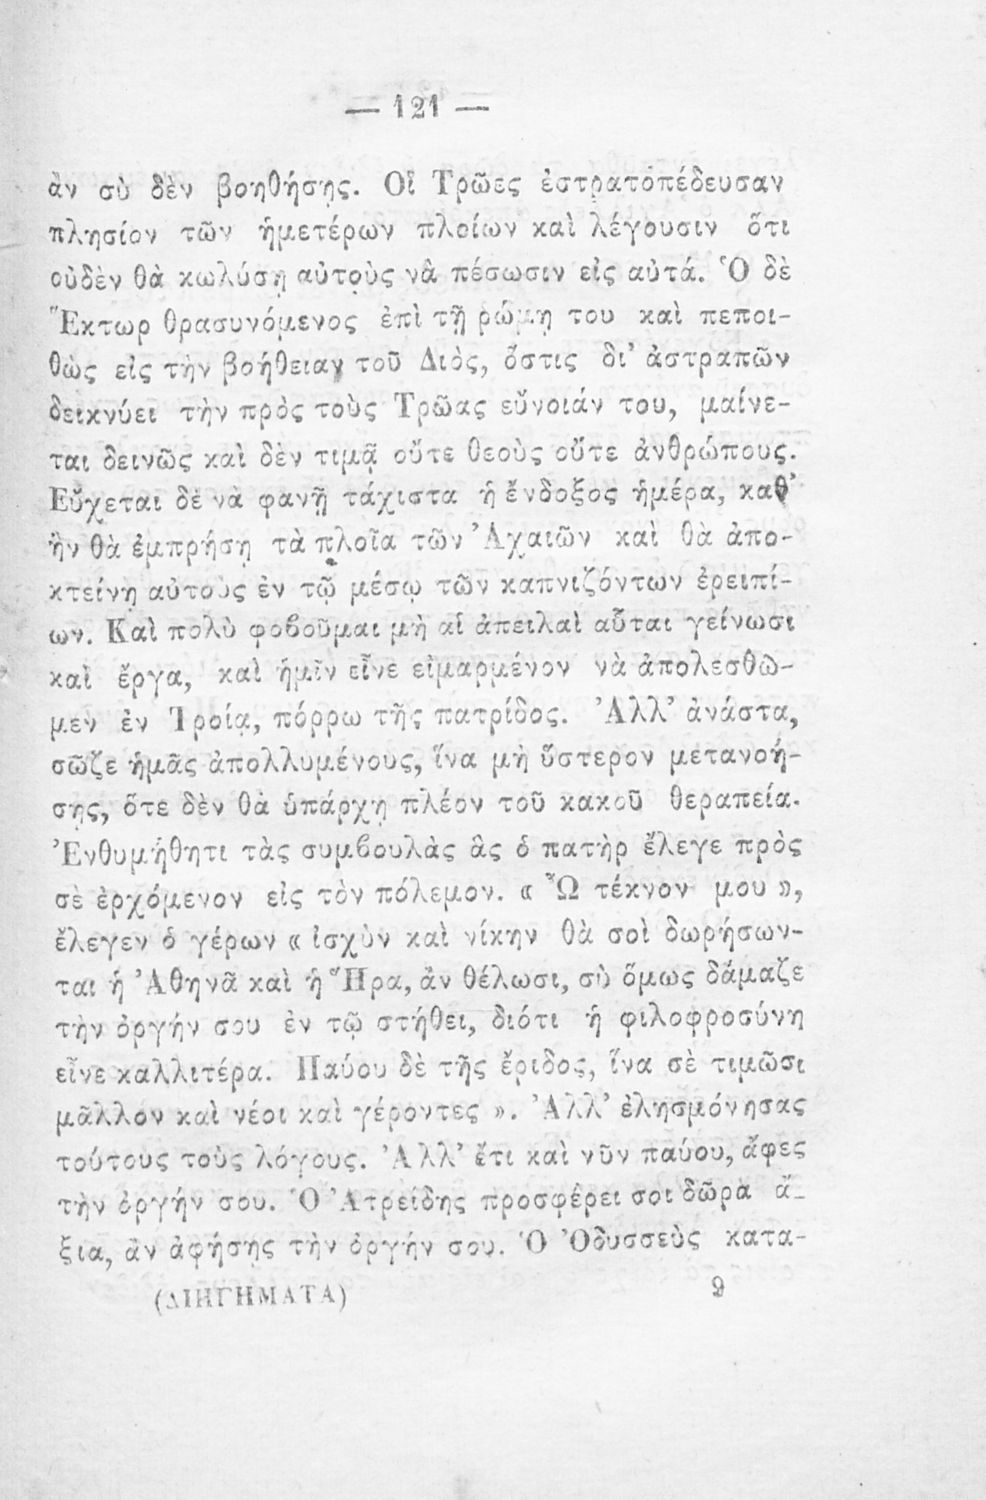 — 121 —
ἂν σὺ δὲν βοηθήσῃς. Οἱ Τρῶες ἐστρατοπέδευσαν
πλησίον τῶν ἡμετέρων πλοίων καὶ λέγουσιν ὅτι
οὐδὲν θὰ κωλύσῃ αὐτοὺς νὰ πέσωσιν εἰς αὐτά. Ὁ δὲ
Ἕκτωρ θρασυνόμενος ἐπὶ τῇ ῥώμῃ του καὶ πεποι-
θὼς εἰς τὴν βοήθειαν τοῦ Διὸς, ὅστις δι’ ἀστραπῶν
δεικνύει τὴν πρὸς τοὺς Τρῶας εὔνοιάν του, μαίνε-
ται δεινῶς καὶ δὲν τιμᾷ οὔτε θεοὺς οὔτε ἀνθρώπους.
Εὔχεται δὲ νὰ φανῇ τάχιστα ἡ ἔνδοξος ἡμέρα, καθ’
ἣν θὰ ἐμπρήσῃ τὰ πλοῖα τῶν Ἀχαιῶν καὶ θὰ ἀπο-
κτείνῃ αὐτοὺς ἐν τῷ μέσῳ τῶν καπνιζόντων ἐρειπί-
ων. Καὶ πολὺ φοβοῦμαι μὴ αἱ ἀπειλαὶ αὗται γείνωσι
καὶ ἔργα, καὶ ἡμῖν εἶνε εἱμαρμένον νὰ ἀπολεσθῶ-
μεν ἐν Τροίᾳ, πόρρω τῆς πατρίδος. Ἀλλ’ ἀνάστα,
σῶζε ἡμᾶς ἀπολλυμένους, ἵνα μὴ ὕστερον μετανοή-
σῃς, ὅτε δὲν θὰ ὑπάρχῃ πλέον τοῦ κακοῦ θεραπεία.
Ἐνθυμήθητι τὰς συμβουλὰς ἃς ὁ πατὴρ ἔλεγε πρὸς
σὲ ἐρχόμενον εἰς τὸν πόλεμον. « Ὦ τέκνον μου »,
ἔλεγεν ὁ γέρων « ἰσχὺν καὶ νίκην θὰ σοὶ δωρήσων-
ται ἡ Ἀθηνᾶ καὶ ἡ Ἥρα, ἂν θέλωσι, σὺ ὅμως δάμαζε
τὴν ὀργήν σου ἐν τῷ στήθει, διότι ἡ φιλοφροσύνη
εἶνε καλλιτέρα. Παύου δὲ τῆς ἔριδος, ἵνα σὲ τιμῶσι
μᾶλλον καὶ νέοι καὶ γέροντες ». Ἀλλ’ ἐλησμόνησας
τούτους τοὺς λόγους. Ἀλλ’ ἔτι καὶ νῦν παύου, ἄφες
τὴν ὀργήν σου. Ὁ Ἀτρείδης προσφέρει σοι δῶρα ἄ-
ξια, ἂν ἀφήσῃς τὴν ὀργήν σου. Ὁ Ὀδυσσεὺς κατα-
(ΔΙΗΓΗΜΑΤΑ) 9